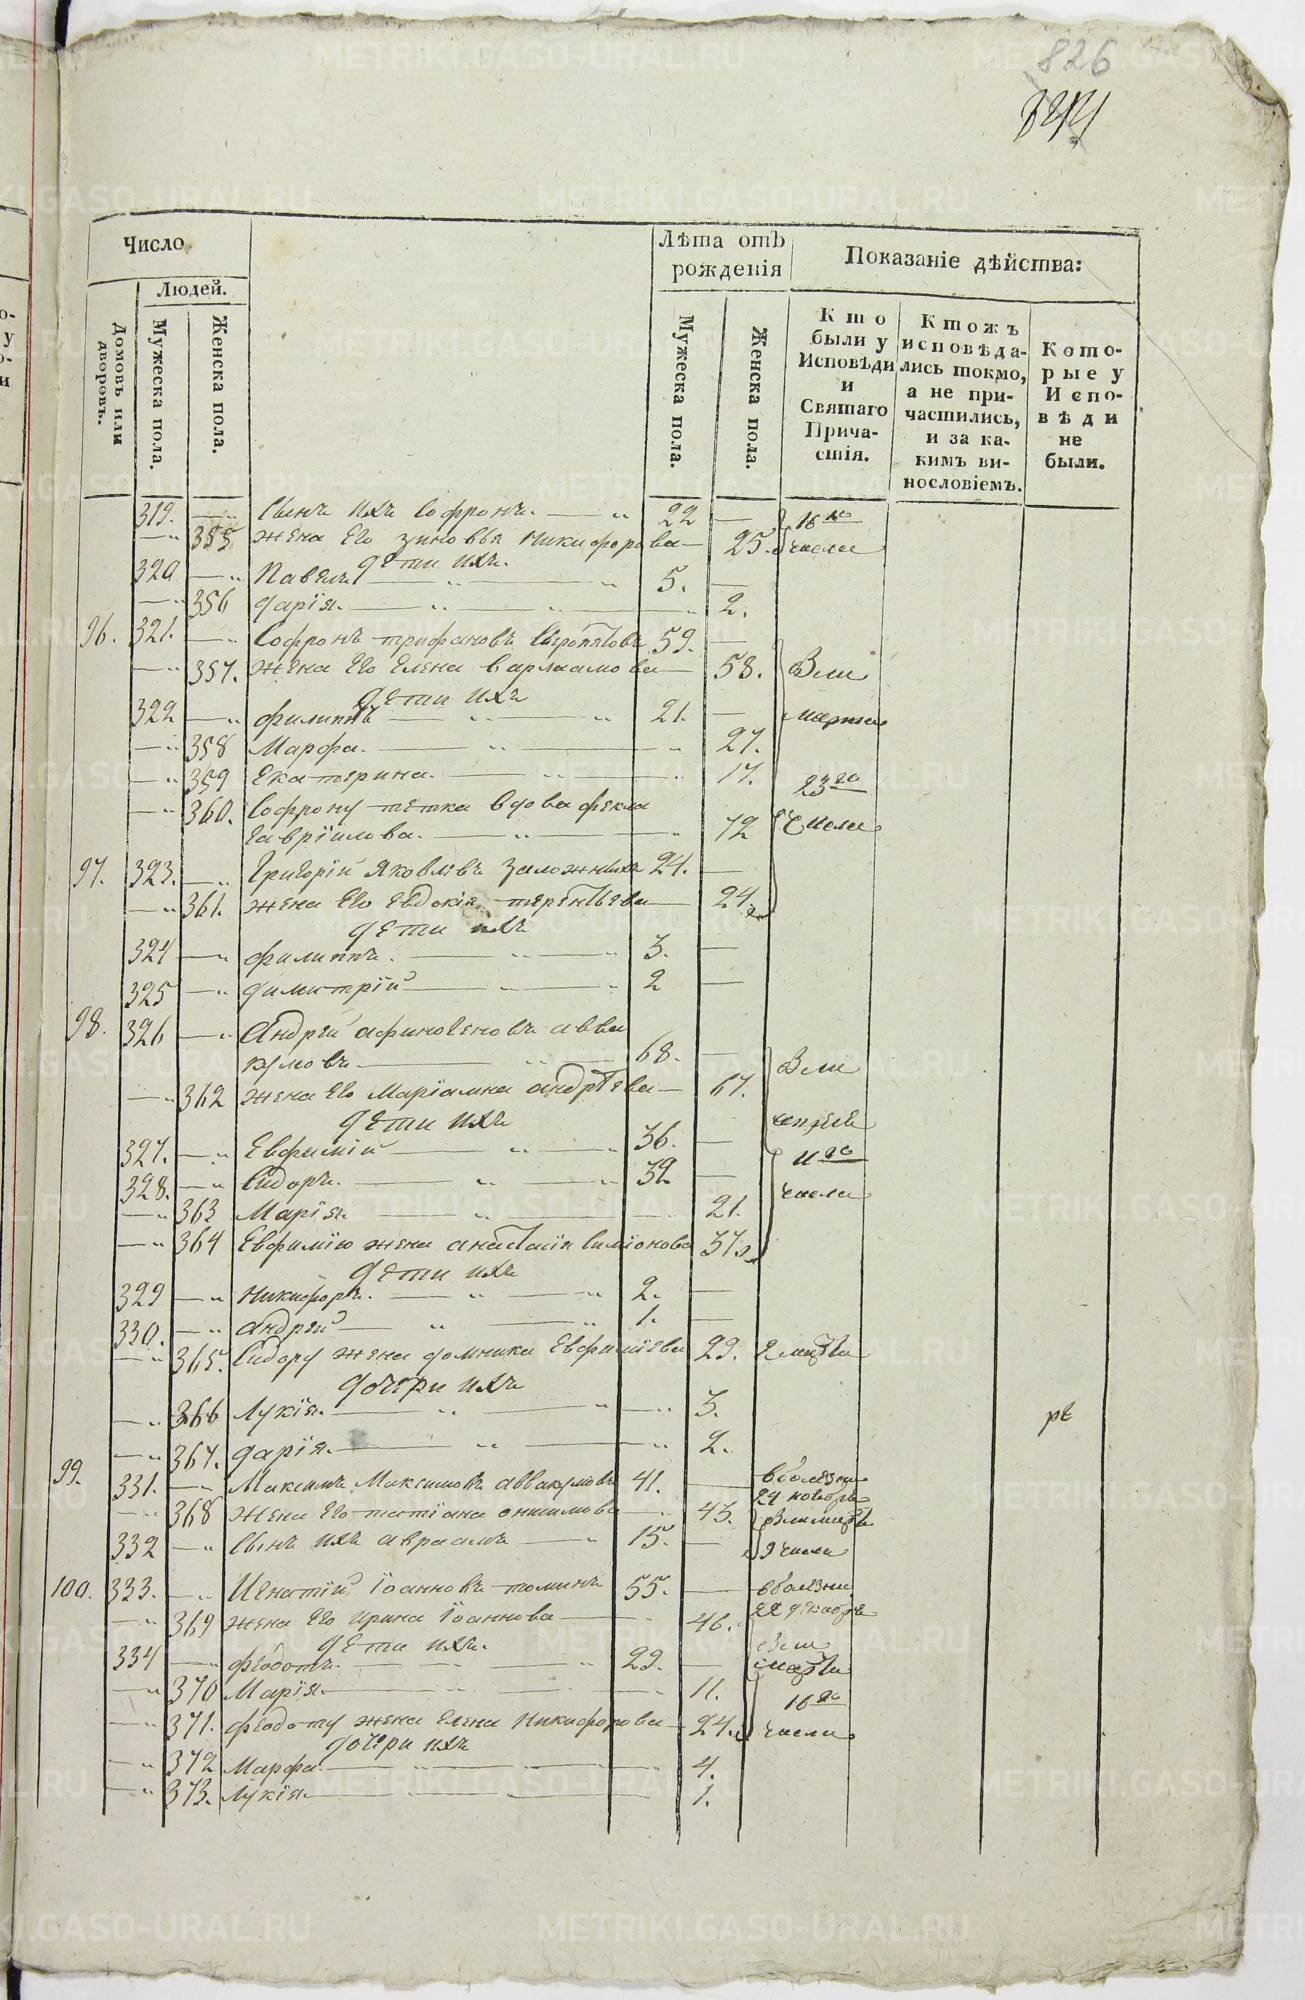 826
Число
Людей.
Домовъ или дворовъ.
Мужеска пола.
Женска пола.
Лѣта отъ рожденія
Мужеска пола.
Женска пола.
Показаніе дѣйства:
Кто были у Исповѣди и Святаго Прича-стія.
Ктожъ исповѣда-лись токмо, а не при-частились, и за ка-кимъ ви-нословіемъ.
Кото-рые у Испо-вѣди не были.
319. Сынъ ихъ Софронъ. 22 16го
355 жена Его Зиновья Никифорова 25. числа
дети ихъ.
320 Павелъ 5.
356 дарія. 2.
96. 321. Софронъ трифановъ 59.
357. жена Его Елена Варлаамова 58.
дети ихъ
322 филиппъ 21. марта
358 Марфа. 27.
359 Екатерина. 17. 23го
360. Софрону тетка вдова фекла
Гавріилова. 72 Числа
97. 323. Григорій Яковлевъ Заложныхъ 24.
361. жена Его Евдокія терентьева 24.
дети ихъ
324 филиппъ. 3.
325 димитрій 2
98. 326 Андрей афиногеновъ авва
кумовъ. 68.
362 жена Его Маріамна андрѣева 67.
дети ихъ
327. Евфимій 36.
328. Сидоръ. 32. 11го
363 Марія. 21. числа
364 Евфимію жена анастасія симіонова 37.
дети ихъ
329 Никифоръ. 2.
330. андрей 1.
365. Сидору жена домника Евфиміева 29.
дочери ихъ
366 Лукія. 3.
367. дарія. 2.
99. 331. Максимъ Максимовъ аввакумовъ 41. в болезни
24 ноября
368 жена Его татіана онисимова 43.
332 Сынъ ихъ авраамъ 15. 9 числа
100. 333. Игнатій Іоанновъ томинъ 55. в болезни
22 декабря
369 жена Его Ирина Іоаннова 46.
дети ихъ.
334 феодотъ. 29.
370 Марія. 11. 16го
371. феодоту жена Елена Никифорова 24. числа
дочери ихъ
372 Марфа 4.
373. Лукія. 1.
METRIKI.GASO-URAL.RU